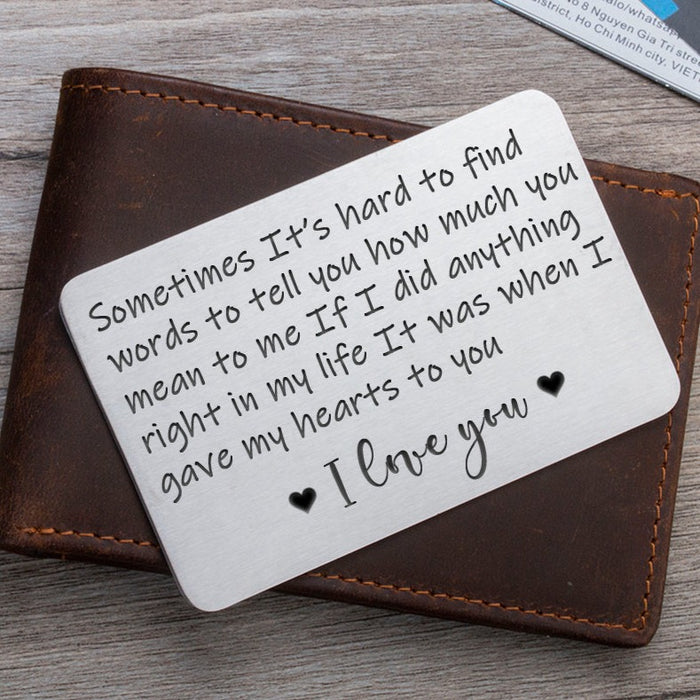 alo/whatsapp
No 8 Nguyen Gia Tri stre
District, Ho Chi Minh city, VIET
Sometimes It's hard to find
words to tell you how much you
mean to me If I did anything
right in my life It was when I
gave my hearts to you
I love you